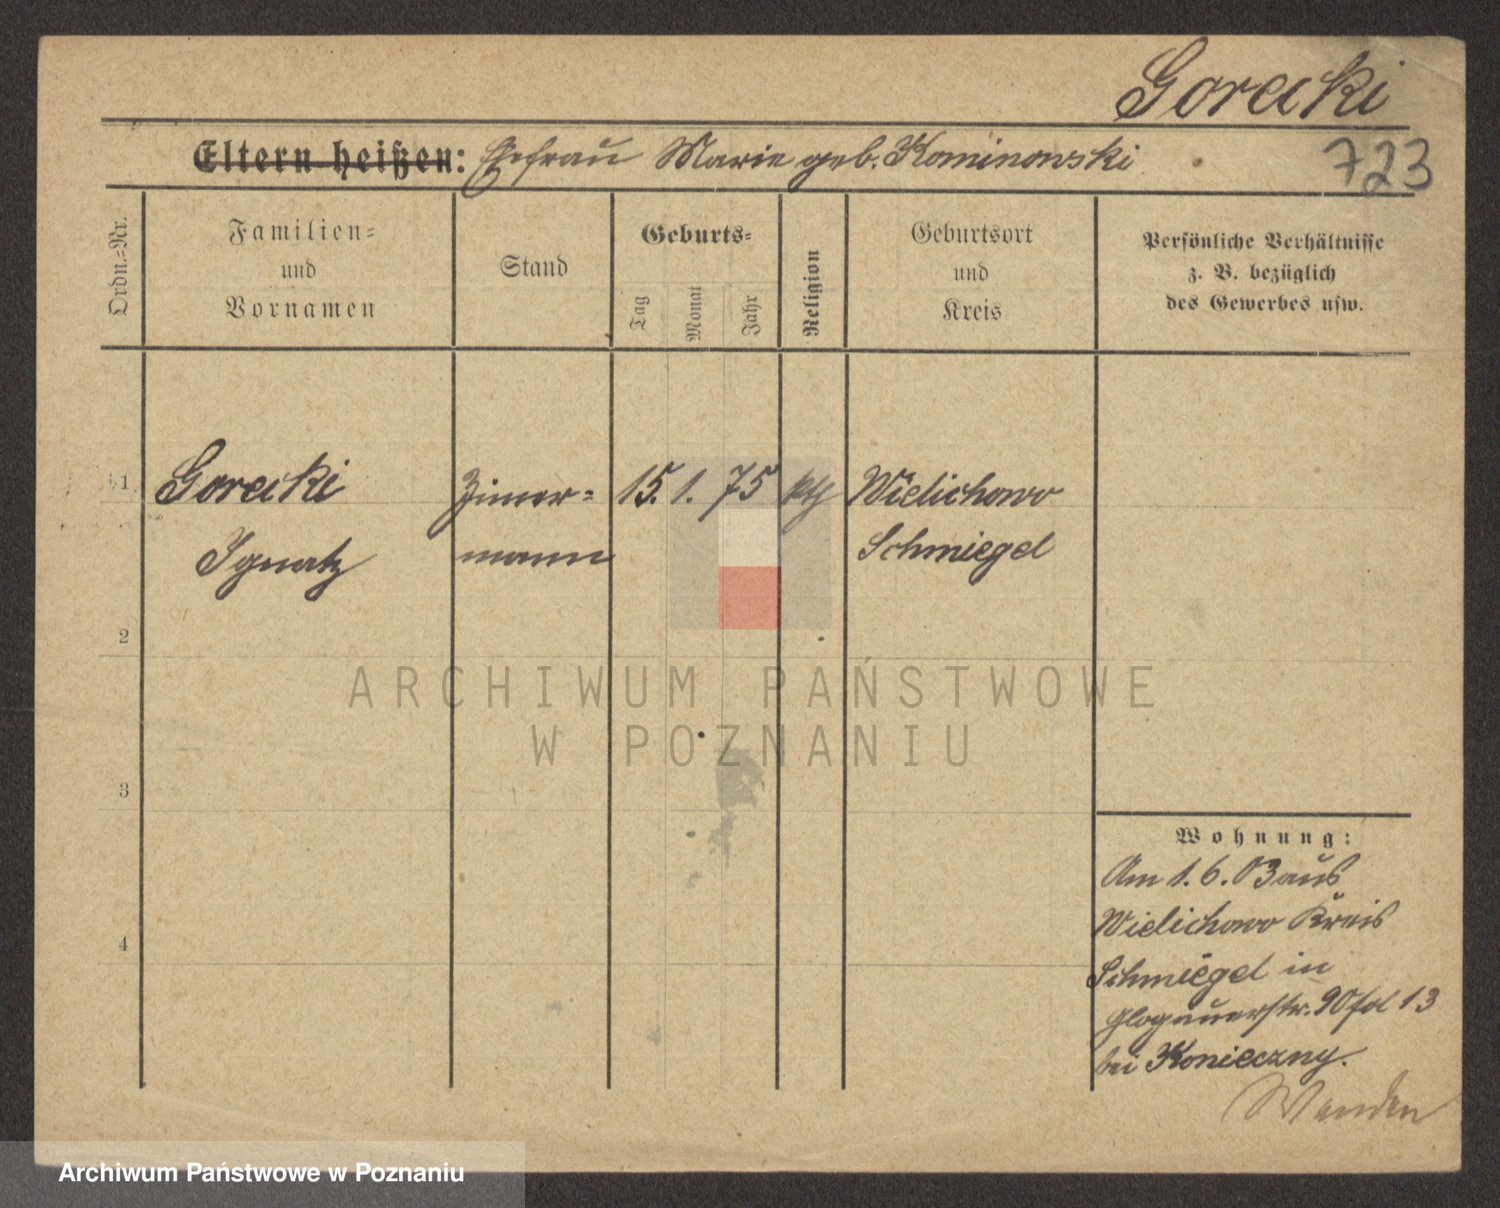 Gorecki
Eltern heißen: Ehefrau Marie geb. Kominowski
723
Ordn.=Nr.
Familien=
und
Vornamen
Stand
Geburts=
Tag
Monat
Jahr
Religion
Geburtsort
und
Kreis
Persönliche Verhältnisse
z. B. bezüglich
des Gewerbes usw.
1 Gorecki Zimer= 15. 1. 75 kth Wielichowo
Ignatz mann Schmiegel
2
ARCHIWUM PAŃSTWOWE
W POZNANIU
3
Wohnung:
Am 1. 6. 03 aus
4
Wielichowo Kreis
Schmiegel in
Glogauerstr. 90 fol 13
bei Konieczny.
Wenden
Archiwum Państwowe w Poznaniu